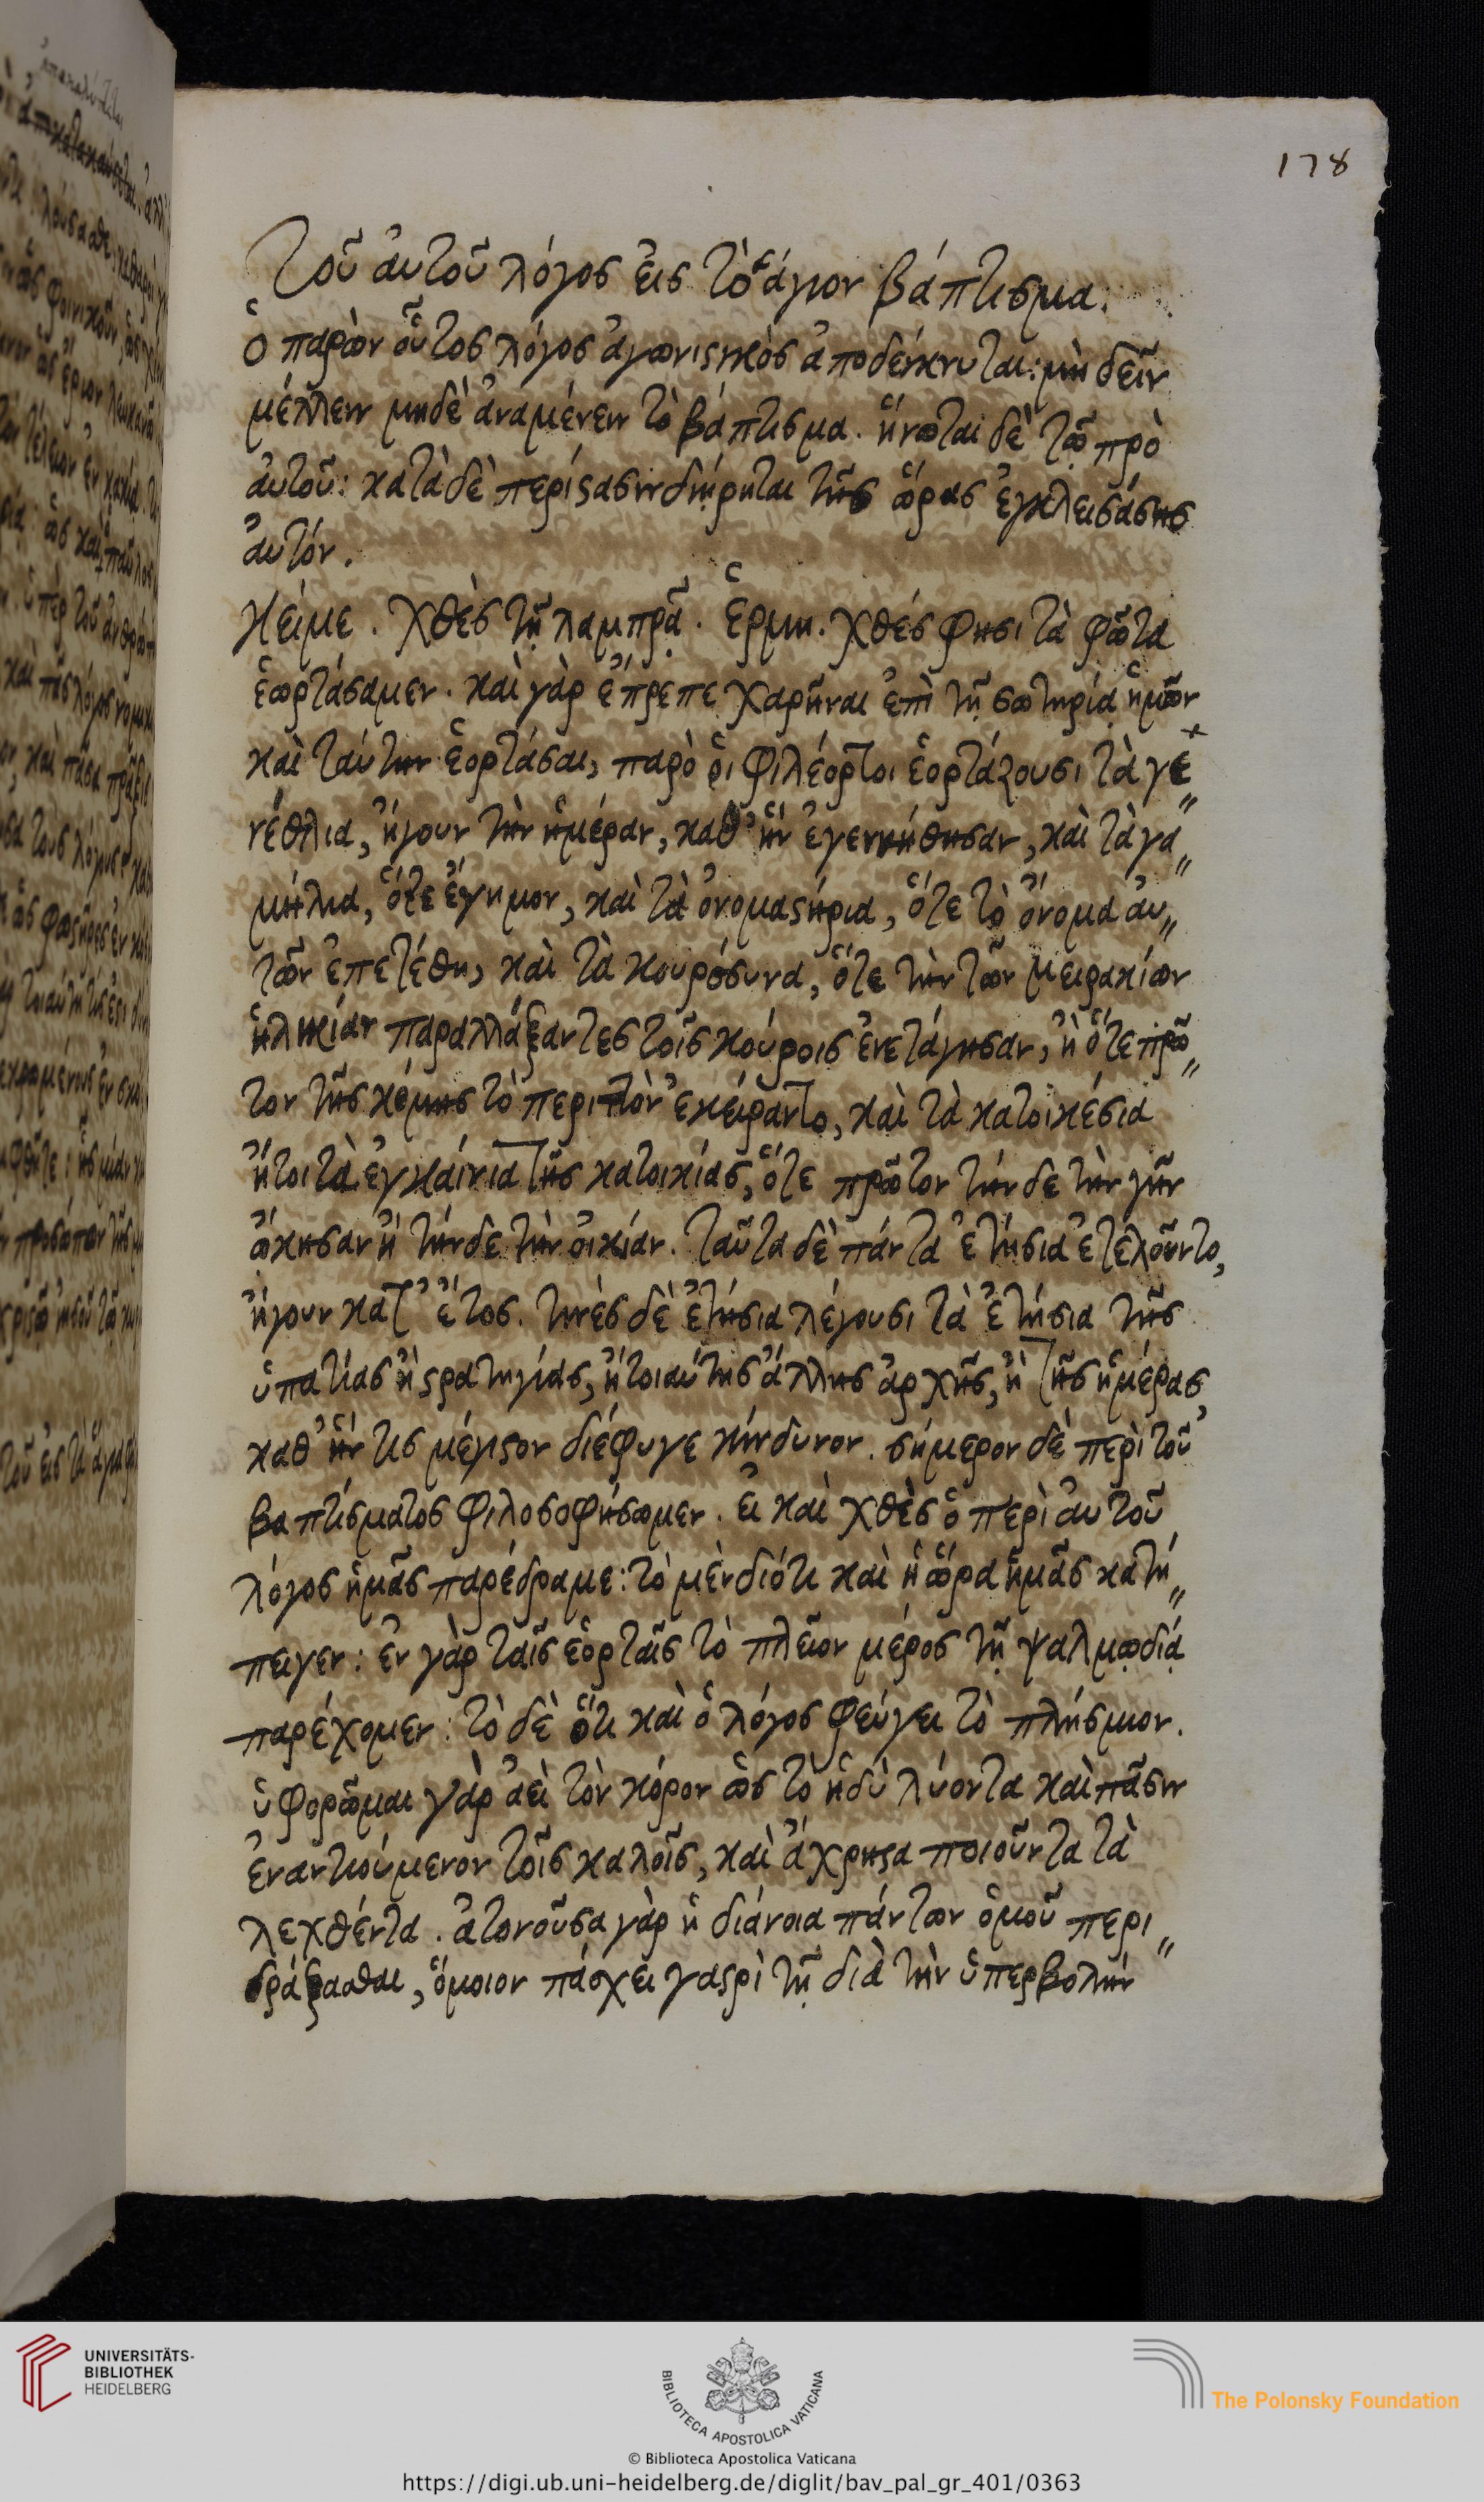 178
Τοῦ αὐτοῦ λόγος εἰς τὸ ἅγιον βάπτισμα.
ὁ παρὼν οὗτος λόγος ἀγωνιστικὸς ἀποδείκνυται: μὴ δεῖν
μέλλειν μηδὲ ἀναμένειν τὸ βάπτισμα. ἥνωται δὲ τῷ πρὸ
αὐτοῦ: κατὰ δὲ περίστασιν διῄρηται τῆς ὥρας ἐγκλεισάσης
αὐτόν.
Κείμε. Χθὲς τῇ λαμπρᾷ. Ἑρμη. χθές φησι τὰ φῶτα
ἑωρτάσαμεν. καὶ γὰρ ἔπρεπε χαρῆναι ἐπὶ τῇ σωτηρίᾳ ἡμῶν
καὶ ταύτην ἑορτάσαι, παρὸ οἱ φιλέορτοι ἑορτάζουσι τὰ γε
νέθλια, ἤγουν τὴν ἡμέραν, καθ' ἣν ἐγεννήθησαν, καὶ τὰ γα〃
μήλια, ὅτε ἔγημον, καὶ τὰ ὀνομαστήρια, ὅτε τὸ ὄνομα αὐ〃
τῶν ἐπετέθη, καὶ τὰ κουρόσυνα, ὅτε τὴν τῶν μειρακίων
ἡλικίαν παραλλάξαντες τοῖς κούροις ἐνετάγησαν, ἢ ὅτε πρῶ〃
τον τῆς κόμης τὸ περιττὸν ἐκείραντο, καὶ τὰ κατοικέσια
ἤτοι τὰ ἐγκαίνια τῆς κατοικίας, ὅτε πρῶτον τήνδε τὴν γῆν
ᾤκησαν ἢ τήνδε τὴν οἰκίαν. ταῦτα δὲ πάντα ἐτήσια ἐτελοῦντο,
ἤγουν κατ' ἔτος. τινὲς δὲ ἐτήσια λέγουσι τὰ ἐτήσια τῆς
ὑπατίας ἢ στρατηγίας, ἢ τοιαύτης ἄλλης ἀρχῆς, ἢ τῆς ἡμέρας,
καθ' ἣν τις μέγιστον διέφυγε κίνδυνον. σήμερον δὲ περὶ τοῦ
βαπτίσματος φιλοσοφήσωμεν. εἰ καὶ χθὲς ὁ περὶ αὐτοῦ
λόγος ἡμᾶς παρέδραμε: τὸ μὲν διότι καὶ ἡ ὥρα ἡμᾶς κατή〃
πειγεν: ἐν γὰρ ταῖς ἑορταῖς τὸ πλεῖον μέρος τῇ ψαλμῳδίᾳ
παρέχομεν: τὸ δὲ ὅτι καὶ ὁ λόγος φεύγει τὸ πλήσμιον.
ὑφορῶμαι γὰρ ἀεὶ τὸν κόρον ὡς τὸ ἡδὺ λύοντα καὶ πᾶσιν
ἐναντιούμενον τοῖς καλοῖς, καὶ ἄχρηστα ποιοῦντα τὰ
λεχθέντα. ἀτονοῦσα γὰρ ἡ διάνοια πάντων ὁμοῦ περι〃
δράξασθαι, ὅμοιον πάσχει γαστρὶ τῇ διὰ τὴν ὑπερβολὴν
UNIVERSITÄTS-
BIBLIOTHEK
HEIDELBERG
BIBLIOTECA APOSTOLICA VATICANA
The Polonsky Foundation
© Biblioteca Apostolica Vaticana
https://digi.ub.uni-heidelberg.de/diglit/bav_pal_gr_401/0363